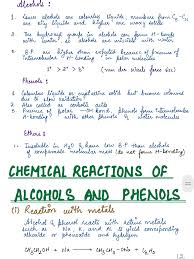 Alcohol :
1. Lower alcohols are colourless liquids, members from C5-C11
are oily liquids and higher are waxy solids
2. The hydroxyl groups in alcohols can form H-bonds
with water, so alcohols are miscible with water
3. B.P are higher than expected because of presence of
Intermolecular H-bonding in polar molecules
1° > 2° > 3° (van der waals force size)
Phenols :
1. Colourless liquids or crystalline solids but become coloured
due to slow oxidation
2. Also called as carbolic acids
3. Presence of OH, phenols form intermolecular
H-bonding with other phenols & water molecules
Ethers :
Insoluble in H2O & have low B.P than alcohols
of comparable molecular mass (do not form H-bonding)
CHEMICAL REACTIONS OF
ALCOHOLS AND PHENOLS
(1) Reaction with metals
Alcohol & phenol reacts with active metals
such as Na, K, and Al to yield corresponding
alkoxide or phenoxide and hydrogen
CH3CH2OH + Na → CH3CH2-ONa + ½ H2